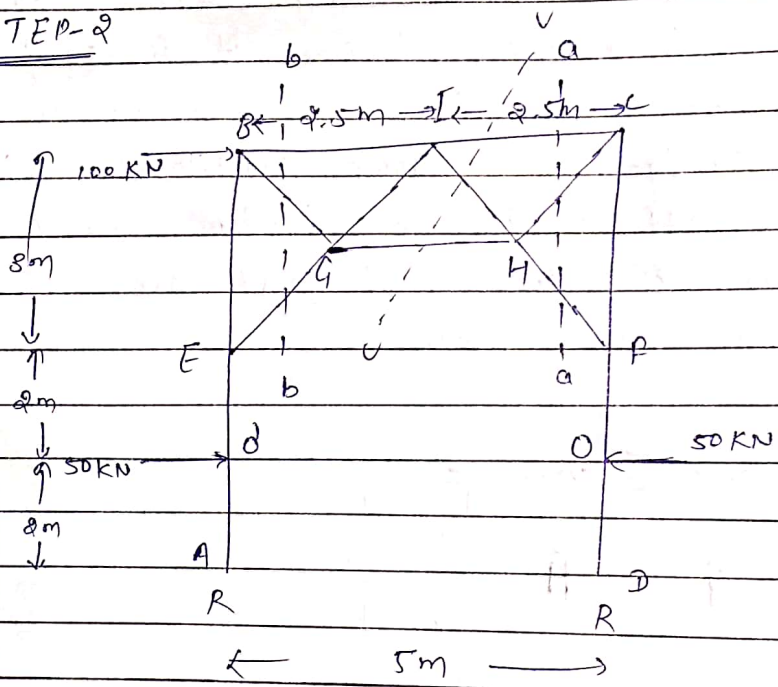 TEP-2
b
V
a
B ← 2.5m → I ← 2.5m → C
100 KN
3m
G
H
E
U
F
b
a
2m
d
O
50 KN
50KN
2m
A
D
R
R
← 5m →